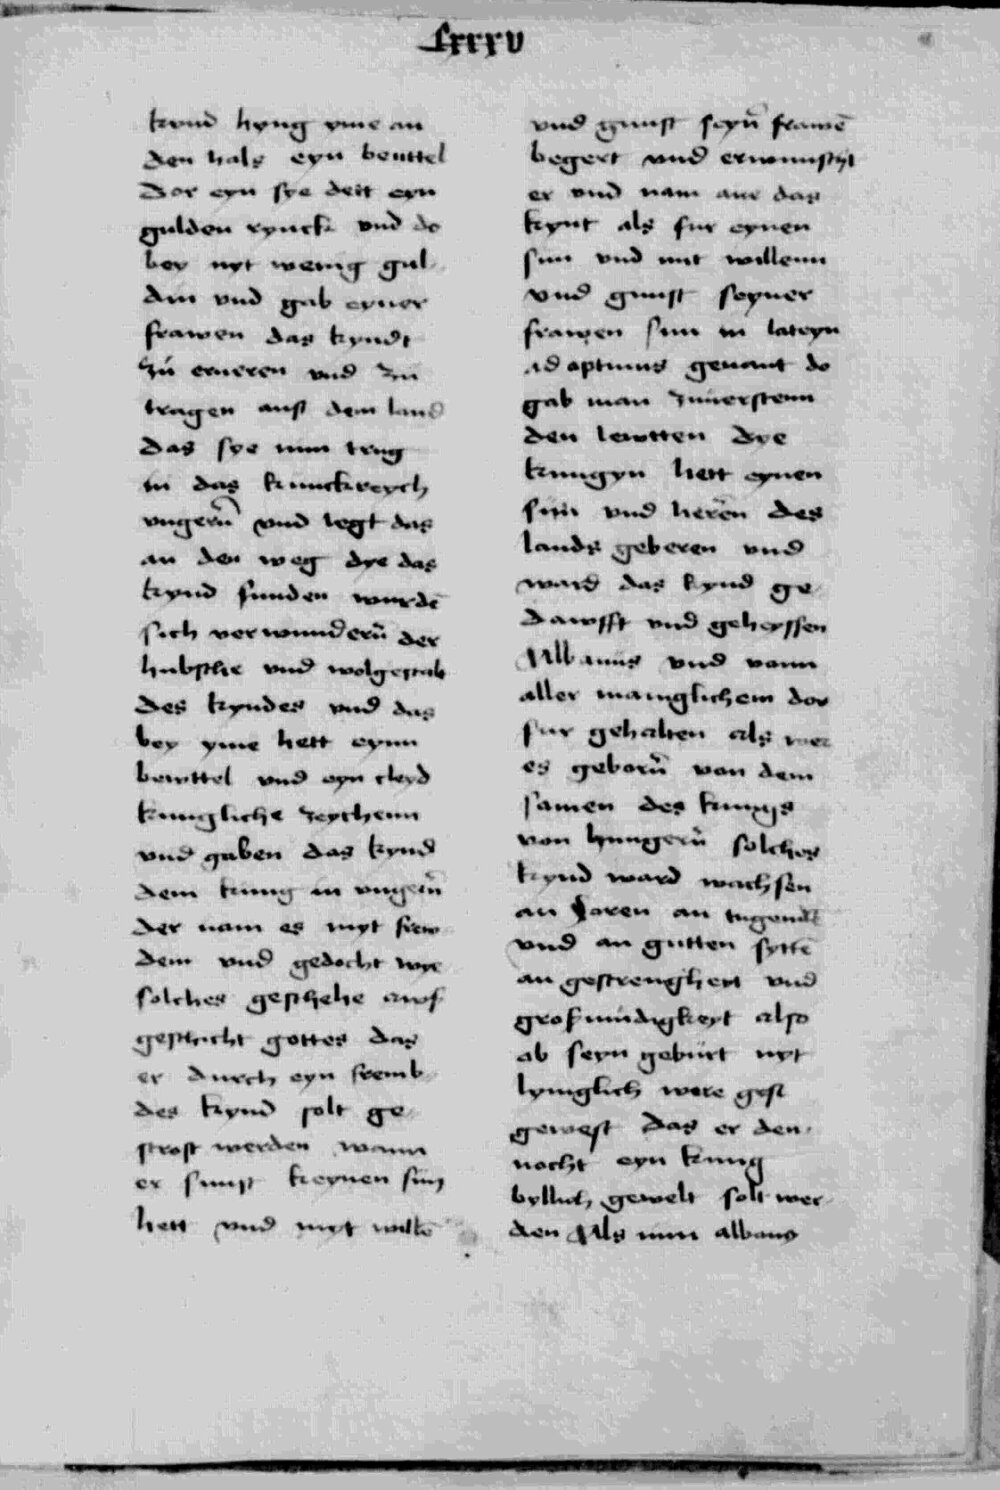 lxxxv
kynd hyng yme an
den hals eyn beuttel
dor eyn sye dett eyn
gulden rynck vnd do
bey nyt wenig gul-
din vnd gab eyner
frawen das kyndt
zu erneren vnd zu
tragen auß dem land
das sye nun trug
in das kunckreych
vngern̄ vnd legt das
an den weg dye das
kynd funden wurdē
sich verwundern̄ der
hubsche vnd wolgestalt
des kyndes vnd das
bey yme hett eynn
bewttel vnd eyn cleyd
kunigliche zeychenn
vnd gaben das kynd
dem kunig in vngern̄
der nam es myt frew-
dem vnd gedocht wye
solches geschehe awß
geschicht gottes das
er durch eyn fremb-
des kynd solt ge-
strost werden wann
er sunst keynen sun
hett vnd myt willē
vnd gunst seyn̄ frawē
begert vnd erwunscht
er vnd nam auf das
kynt als fur eynen
sun vnd mit willenn
vnd gunst seyner
frawen sun in lateyn
adoptiuus genant do
gab man zuuerstenn
den lewtten dye
kunigyn hett eynen
sun vnd heren des
lands geberen vnd
ward das kynd ge-
dawfft vnd geheyssen
Albanus vnd vonn
aller maniglichem dor
fur gehalten als wer
es geborn̄ von dem
samen des kunigs
von hungern̄ solches
kynd ward wachsen
an Joren an tugendē
vnd an gutten syttē
an gestrengheit vnd
großmudigkeyt also
ab seyn geburt nyt
lymglich were gest
gewest das er den-
nocht eyn kunig
byllich gewelt solt wer-
den Als nun albanus